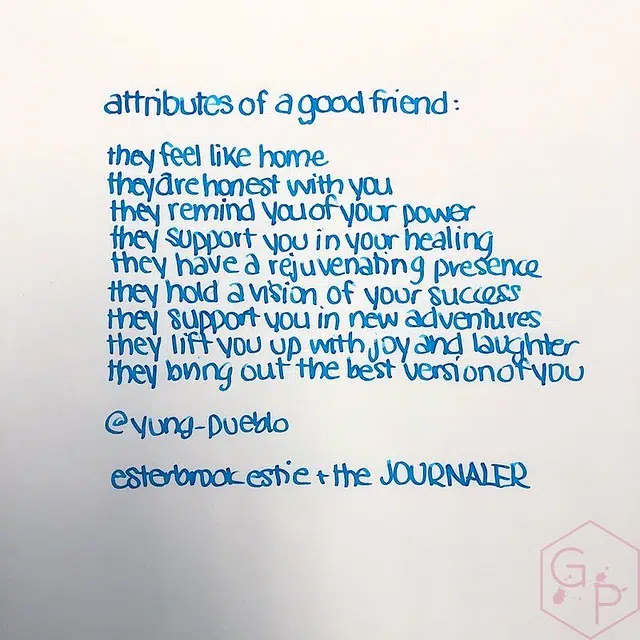 attributes of a good friend:
they feel like home
they are honest with you
they remind you of your power
they support you in your healing
they have a rejuvenating presence
they hold a vision of your success
they support you in new adventures
they lift you up with joy and laughter
they bring out the best version of you
@yung-pueblo
esterbrook estie + the JOURNALER
GP